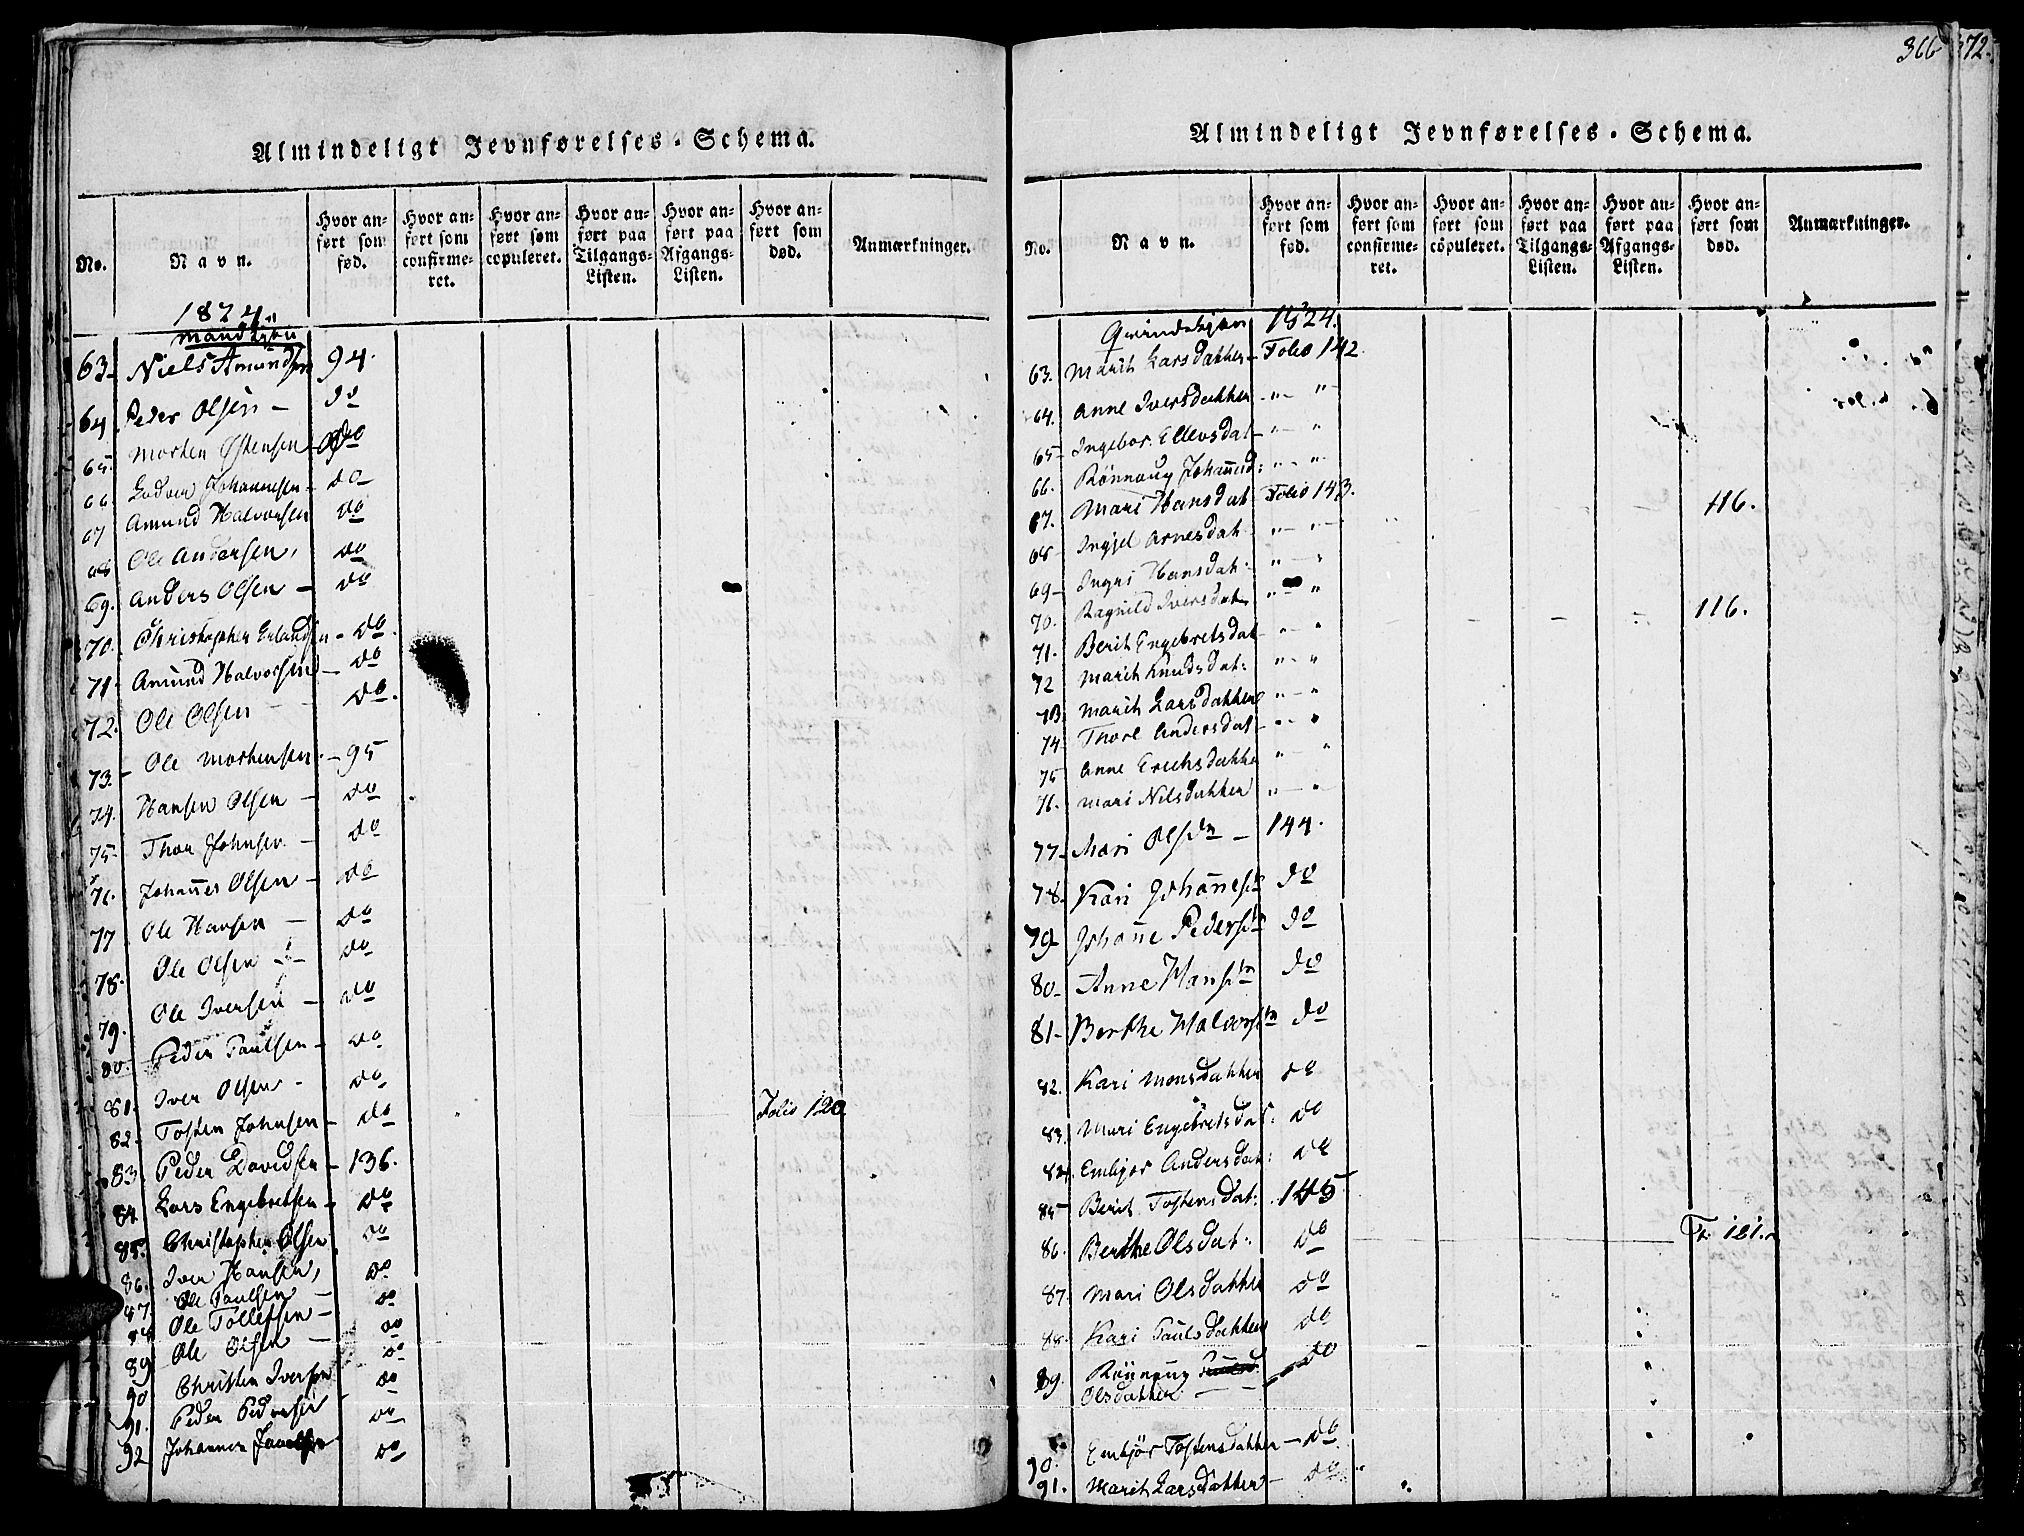 366 372.
Almindeligt Jevnførelses-Schema.
No. Navn. Hvor anført som fød. Hvor anført som confirmeret. Hvor anført som copuleret. Hvor anført paa Tilgangs-Listen. Hvor anført paa Afgangs-Listen. Hvor anført som død. Anmærkninger.
1824
Mandkjøn
63 Niels Amundsen 94.
64 Peder Olsen - do
65 Morten Østensen do
66 Johannesen - do
67 Amund Halvorsen do
68 Ole Andersen, do
69. Anders Olsen - do
70. Christopher Erlandsen - do.
71 Amund Halvorsen - do
72. Ole Olsen - do.
73. Ole Mortensen - 95
74. Hansen Olsen - do
75 Thor Johnsen - do
76. Johannes Olsen - do
77 Ole Hansen - do
78. Ole Olsen - do
79. Ole Iversen - do
80. Peder Paulsen - do
81. Iver Olsen - do
82. Tosten Johnsen - do Folio 120
83. Peder Davidsen - 136.
84 Lars Engebretsen - do
85. Christopher Olsen do
86. Iver Hansen, do
87. Ole Paulsen - do
88 Ole Tollefsen - do
89 Ole Olsen - do
90 Christen Iversen do
91. Peder Pedersen do
92 Johannes do
Almindeligt Jevnførelses-Schema.
No. Navn. Hvor anført som fød. Hvor anført som confirmeret. Hvor anført som copuleret. Hvor anført paa Tilgangs-Listen. Hvor anført paa Afgangs-Listen. Hvor anført som død. Anmærkninger.
Qvindekjøn 1824.
63. Marit Larsdatter - Folio 142
64. Anne Iversdatter - " - "
65 Ingebor. Ellevsdat - " - "
66. Rønnaug Johannsd: " - "
67. Mari Hansdat Folio 143. 116.
68 Ingjel Arnesdat: " - "
69 Ingri Hansdat: " - "
70. Ragnild Iversdat " - "
71. Berit Engebretsdat - " - " 116.
72 Marit Knudsdat: " - "
73 Marit Larsdatter " - "
74 Thore Andersdat - " - "
75 Anne Erichsdatte " - "
76. Mari Nilsdatter " - "
77 Mari Olsdr - 144.
78. Kari Johannesdr do
79 Johanne Pedersdr do
80 Anne Hansdr do
81 Berthe Halvorsdr do
82. Kari Monsdatter do
83. Mari Engebretsdat: do
84. Embjør Andersdat: do
85 Berit Tostensdat: 145
86. Berthe Olsdat: do Fo 121.
87. Mari Olsdatter do
88. Kari Paulsdatter do
89. Rönnoug Olsdatter - do
90. Embjør Tostensdatter - do
91. Marit Larsdatter - do